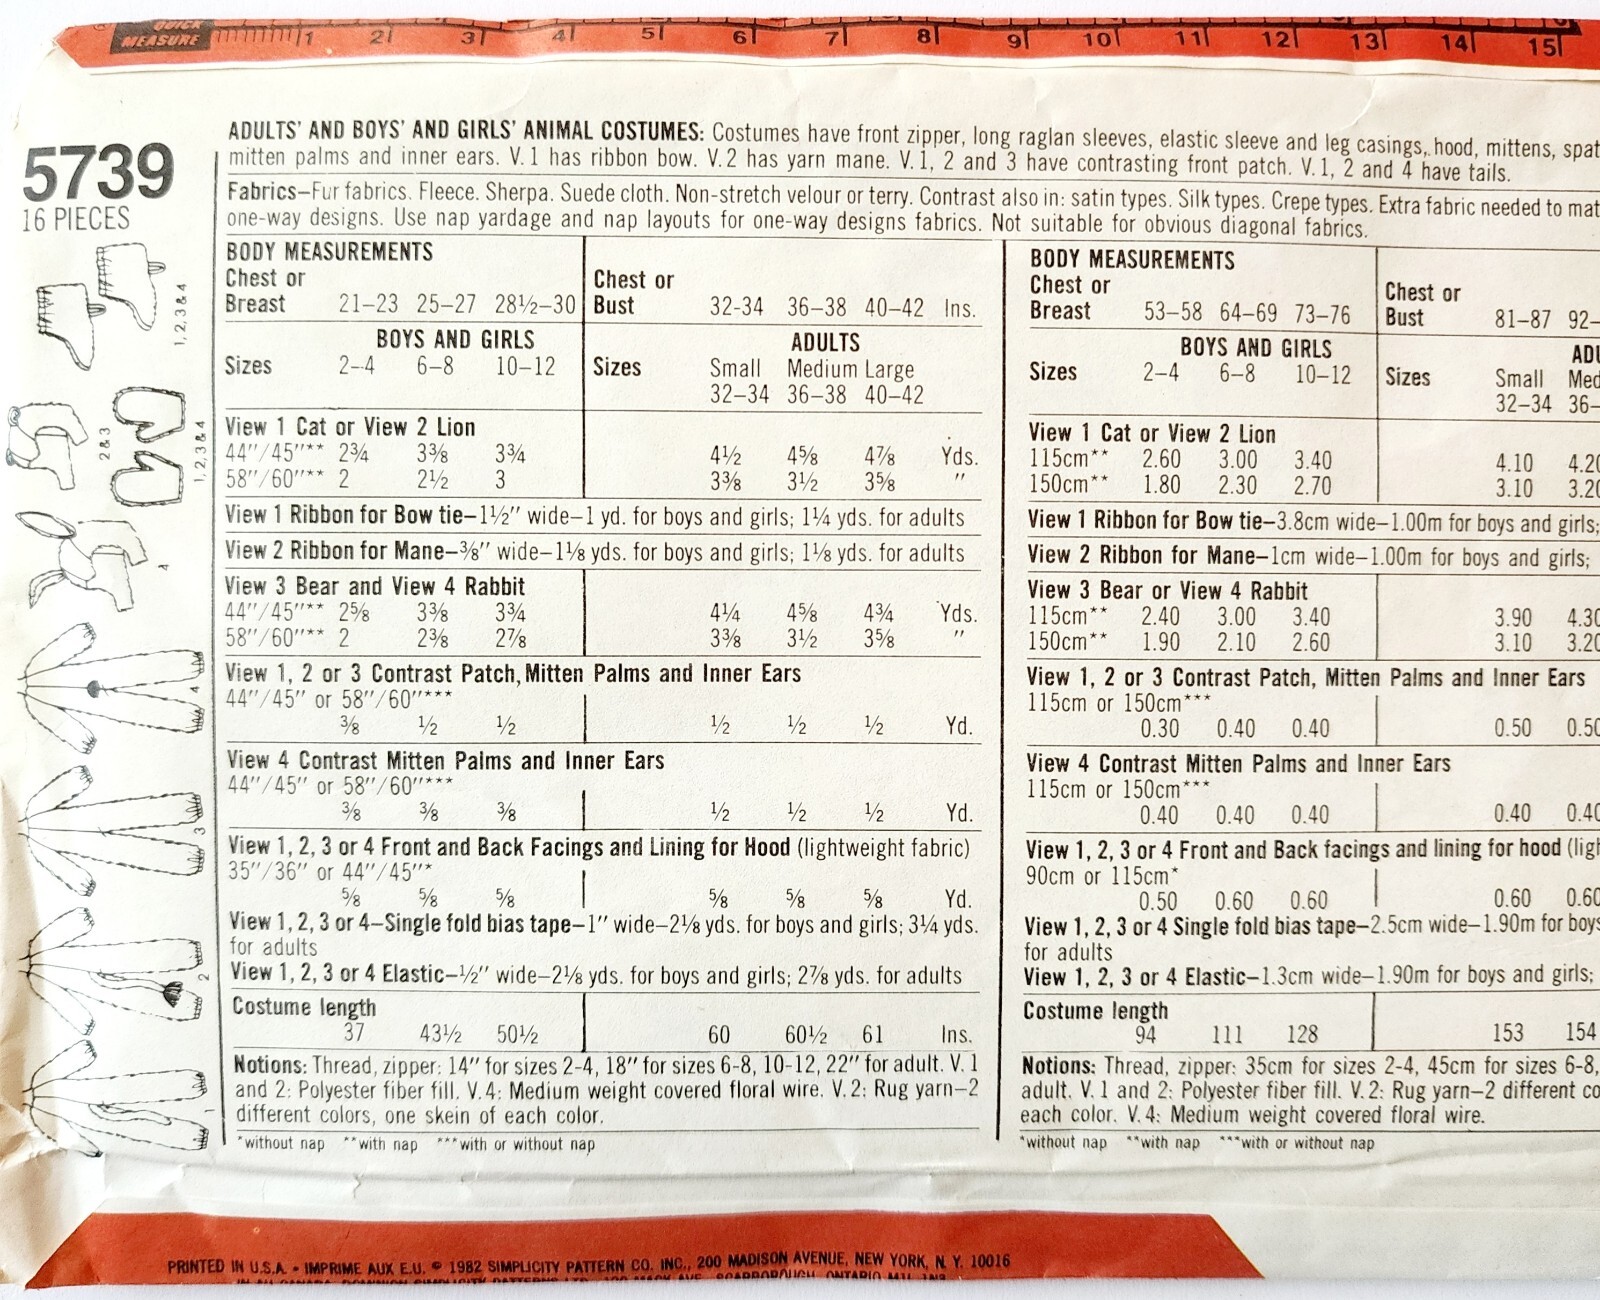 QUICK
MEASURE 1 2 3 4 5 6 7 8 9 10 11 12 13 14 15
5739
16 PIECES
1, 2, 3 & 4
2 & 3
1, 2, 3 & 4
4
4
3
2
1
ADULTS' AND BOYS' AND GIRLS' ANIMAL COSTUMES: Costumes have front zipper, long raglan sleeves, elastic sleeve and leg casings, hood, mittens, spat
mitten palms and inner ears. V. 1 has ribbon bow. V. 2 has yarn mane. V. 1, 2 and 3 have contrasting front patch. V. 1, 2 and 4 have tails.
Fabrics–Fur fabrics. Fleece. Sherpa. Suede cloth. Non-stretch velour or terry. Contrast also in: satin types. Silk types. Crepe types. Extra fabric needed to mat
one-way designs. Use nap yardage and nap layouts for one-way designs fabrics. Not suitable for obvious diagonal fabrics.
BODY MEASUREMENTS
Chest or Chest or
Breast 21–23 25–27 28½–30 Bust 32-34 36–38 40–42 Ins.
BOYS AND GIRLS ADULTS
Sizes 2–4 6–8 10–12 Sizes Small Medium Large
32–34 36–38 40–42
View 1 Cat or View 2 Lion
44"/45"** 2¾ 3⅜ 3¾ 4½ 4⅝ 4⅞ Yds.
58"/60"** 2 2½ 3 3⅜ 3½ 3⅝ "
View 1 Ribbon for Bow tie–1½" wide–1 yd. for boys and girls; 1¼ yds. for adults
View 2 Ribbon for Mane–⅜" wide–1⅛ yds. for boys and girls; 1⅛ yds. for adults
View 3 Bear and View 4 Rabbit
44"/45"** 2⅝ 3⅜ 3¾ 4¼ 4⅝ 4¾ Yds.
58"/60"** 2 2⅜ 2⅞ 3⅜ 3½ 3⅝ "
View 1, 2 or 3 Contrast Patch, Mitten Palms and Inner Ears
44"/45" or 58"/60"***
⅜ ½ ½ ½ ½ ½ Yd.
View 4 Contrast Mitten Palms and Inner Ears
44"/45" or 58"/60"***
⅜ ⅜ ⅜ ½ ½ ½ Yd.
View 1, 2, 3 or 4 Front and Back Facings and Lining for Hood (lightweight fabric)
35"/36" or 44"/45"*
⅝ ⅝ ⅝ ⅝ ⅝ ⅝ Yd.
View 1, 2, 3 or 4–Single fold bias tape–1" wide–2⅛ yds. for boys and girls; 3¼ yds.
for adults
View 1, 2, 3 or 4 Elastic–½" wide–2⅛ yds. for boys and girls; 2⅞ yds. for adults
Costume length
37 43½ 50½ 60 60½ 61 Ins.
Notions: Thread, zipper: 14" for sizes 2-4, 18" for sizes 6-8, 10-12, 22" for adult. V. 1
and 2: Polyester fiber fill. V. 4: Medium weight covered floral wire. V. 2: Rug yarn–2
different colors, one skein of each color.
*without nap **with nap ***with or without nap
BODY MEASUREMENTS
Chest or Chest or
Breast 53–58 64–69 73–76 Bust 81–87 92–
BOYS AND GIRLS ADU
Sizes 2–4 6–8 10–12 Sizes Small Med
32–34 36–
View 1 Cat or View 2 Lion
115cm** 2.60 3.00 3.40 4.10 4.20
150cm** 1.80 2.30 2.70 3.10 3.20
View 1 Ribbon for Bow tie–3.8cm wide–1.00m for boys and girls;
View 2 Ribbon for Mane–1cm wide–1.00m for boys and girls;
View 3 Bear or View 4 Rabbit
115cm** 2.40 3.00 3.40 3.90 4.30
150cm** 1.90 2.10 2.60 3.10 3.20
View 1, 2 or 3 Contrast Patch, Mitten Palms and Inner Ears
115cm or 150cm***
0.30 0.40 0.40 0.50 0.50
View 4 Contrast Mitten Palms and Inner Ears
115cm or 150cm***
0.40 0.40 0.40 0.40 0.40
View 1, 2, 3 or 4 Front and Back facings and lining for hood (ligh
90cm or 115cm*
0.50 0.60 0.60 0.60 0.60
View 1, 2, 3 or 4 Single fold bias tape–2.5cm wide–1.90m for boys
for adults
View 1, 2, 3 or 4 Elastic–1.3cm wide–1.90m for boys and girls;
Costume length
94 111 128 153 154
Notions: Thread, zipper: 35cm for sizes 2-4, 45cm for sizes 6-8,
adult. V. 1 and 2: Polyester fiber fill. V. 2: Rug yarn–2 different co
each color. V. 4: Medium weight covered floral wire.
*without nap **with nap ***with or without nap
PRINTED IN U.S.A. • IMPRIME AUX E.U. © 1982 SIMPLICITY PATTERN CO. INC., 200 MADISON AVENUE, NEW YORK, N. Y. 10016